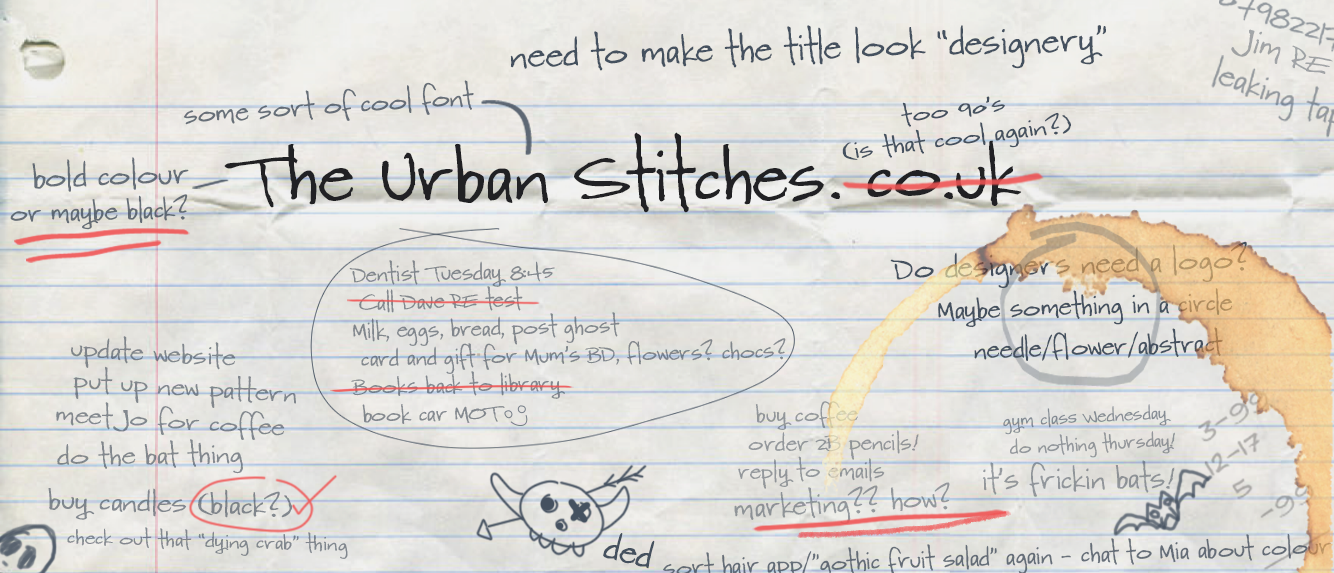 need to make the title look "designery"
79822
Jim RE
leaking tap
some sort of cool font
too 90's
(is that cool again?)
bold colour
or maybe black?
The Urban Stitches. co.uk
Do designers need a logo?
Maybe something in a circle
needle/flower/abstract
Dentist Tuesday 8:45
Call Dave RE test
Milk, eggs, bread, post ghost
card and gift for Mum's BD, flowers? chocs?
Books back to library
book car MOT
update website
put up new pattern
meet Jo for coffee
do the bat thing
buy candles (black?)
check out that "dying crab" thing
buy coffee
order 2B pencils!
reply to emails
marketing?? how?
gym class wednesday
do nothing thursday!
it's frickin bats!
3-99
12-17
5
-99
ded
sort hair app/"gothic fruit salad" again - chat to Mia about colour